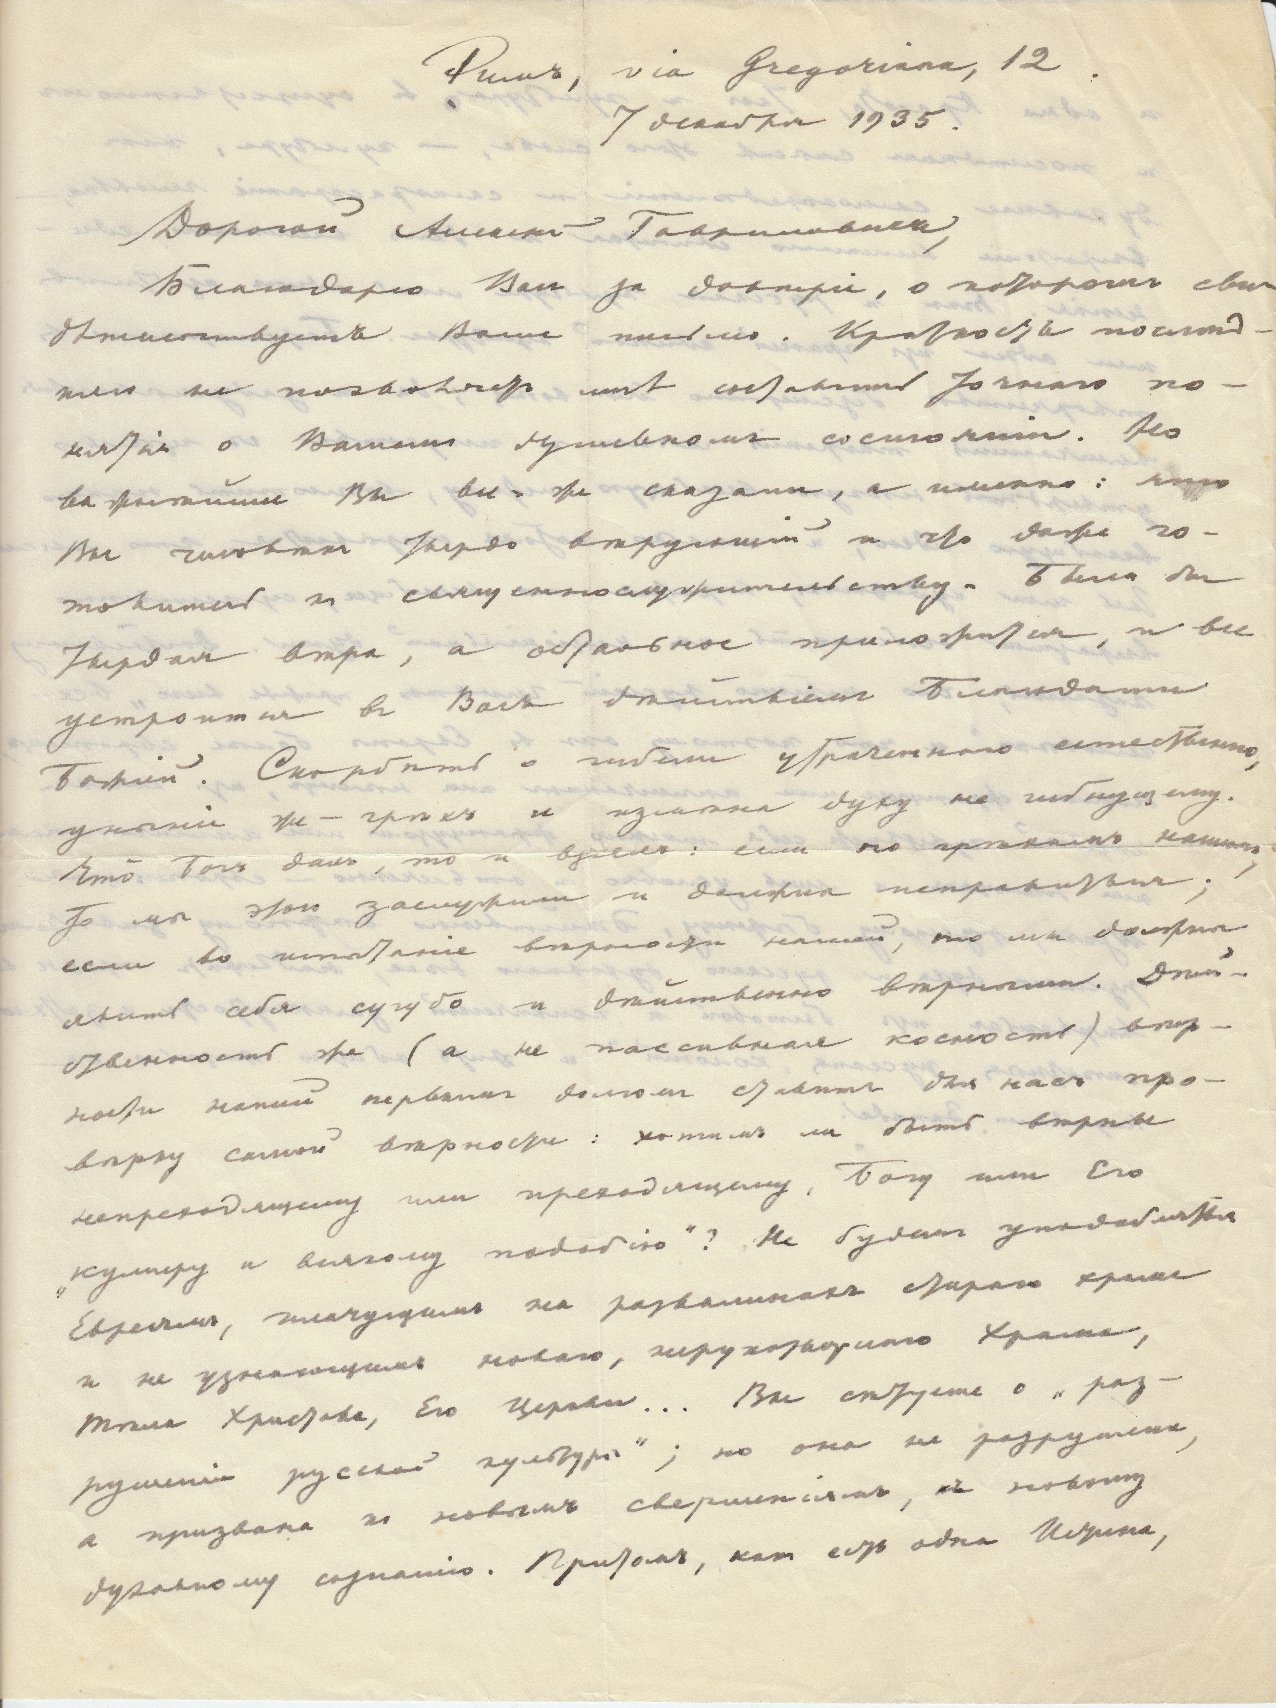 Римъ, via Gregoriana, 12.
7 декабря 1935.
Дорогой Алексѣй Гавриловичъ,
Благодарю Васъ за довѣріе, о которомъ сви-
дѣтельствуетъ Ваше письмо. Краткость послѣд-
няго не позволяетъ мнѣ составить точнаго по-
нятія о Вашемъ душевномъ состояніи. Но
важнѣйшее Вы все-же сказали, а именно: что
Вы человѣкъ твердо вѣрующій и что даже го-
товитесь къ священнослужительству. Была бы
твердая вѣра, а остальное приложится, и все
устроится въ Васъ дѣйствіемъ Благодати
Божіей. Скорбѣть о гибели утраченнаго естественно,
уныніе же – грѣхъ и измѣна духу не гибнущему.
Что Богъ далъ, то и взялъ: если по грѣхамъ нашимъ,
то мы это заслужили и должны исправиться;
если во испытаніе вѣрности нашей, то мы должны
явить себя сугубо и дѣйственно вѣрными. Дѣй-
ственность же (а не пассивная косность) вѣр-
ности нашей первымъ долгомъ ставитъ для насъ про-
вѣрку самой вѣрности: хотимъ ли быть вѣрны
непреходящему или преходящему, Богу или Его
„кумиру и всякому подобію“? Не будемъ уподобляться
Евреямъ, плачущимъ на развалинахъ стараго храма
и не узнающимъ новаго, нерукотворнаго Храма,
Тѣла Христова, Его Церкви... Вы сѣтуете о „раз-
рушеніи русской культуры“; но она не разрушена,
а призвана къ новымъ свершеніямъ, къ новому
духовному сознанію. Притомъ, какъ есть одна Истина,